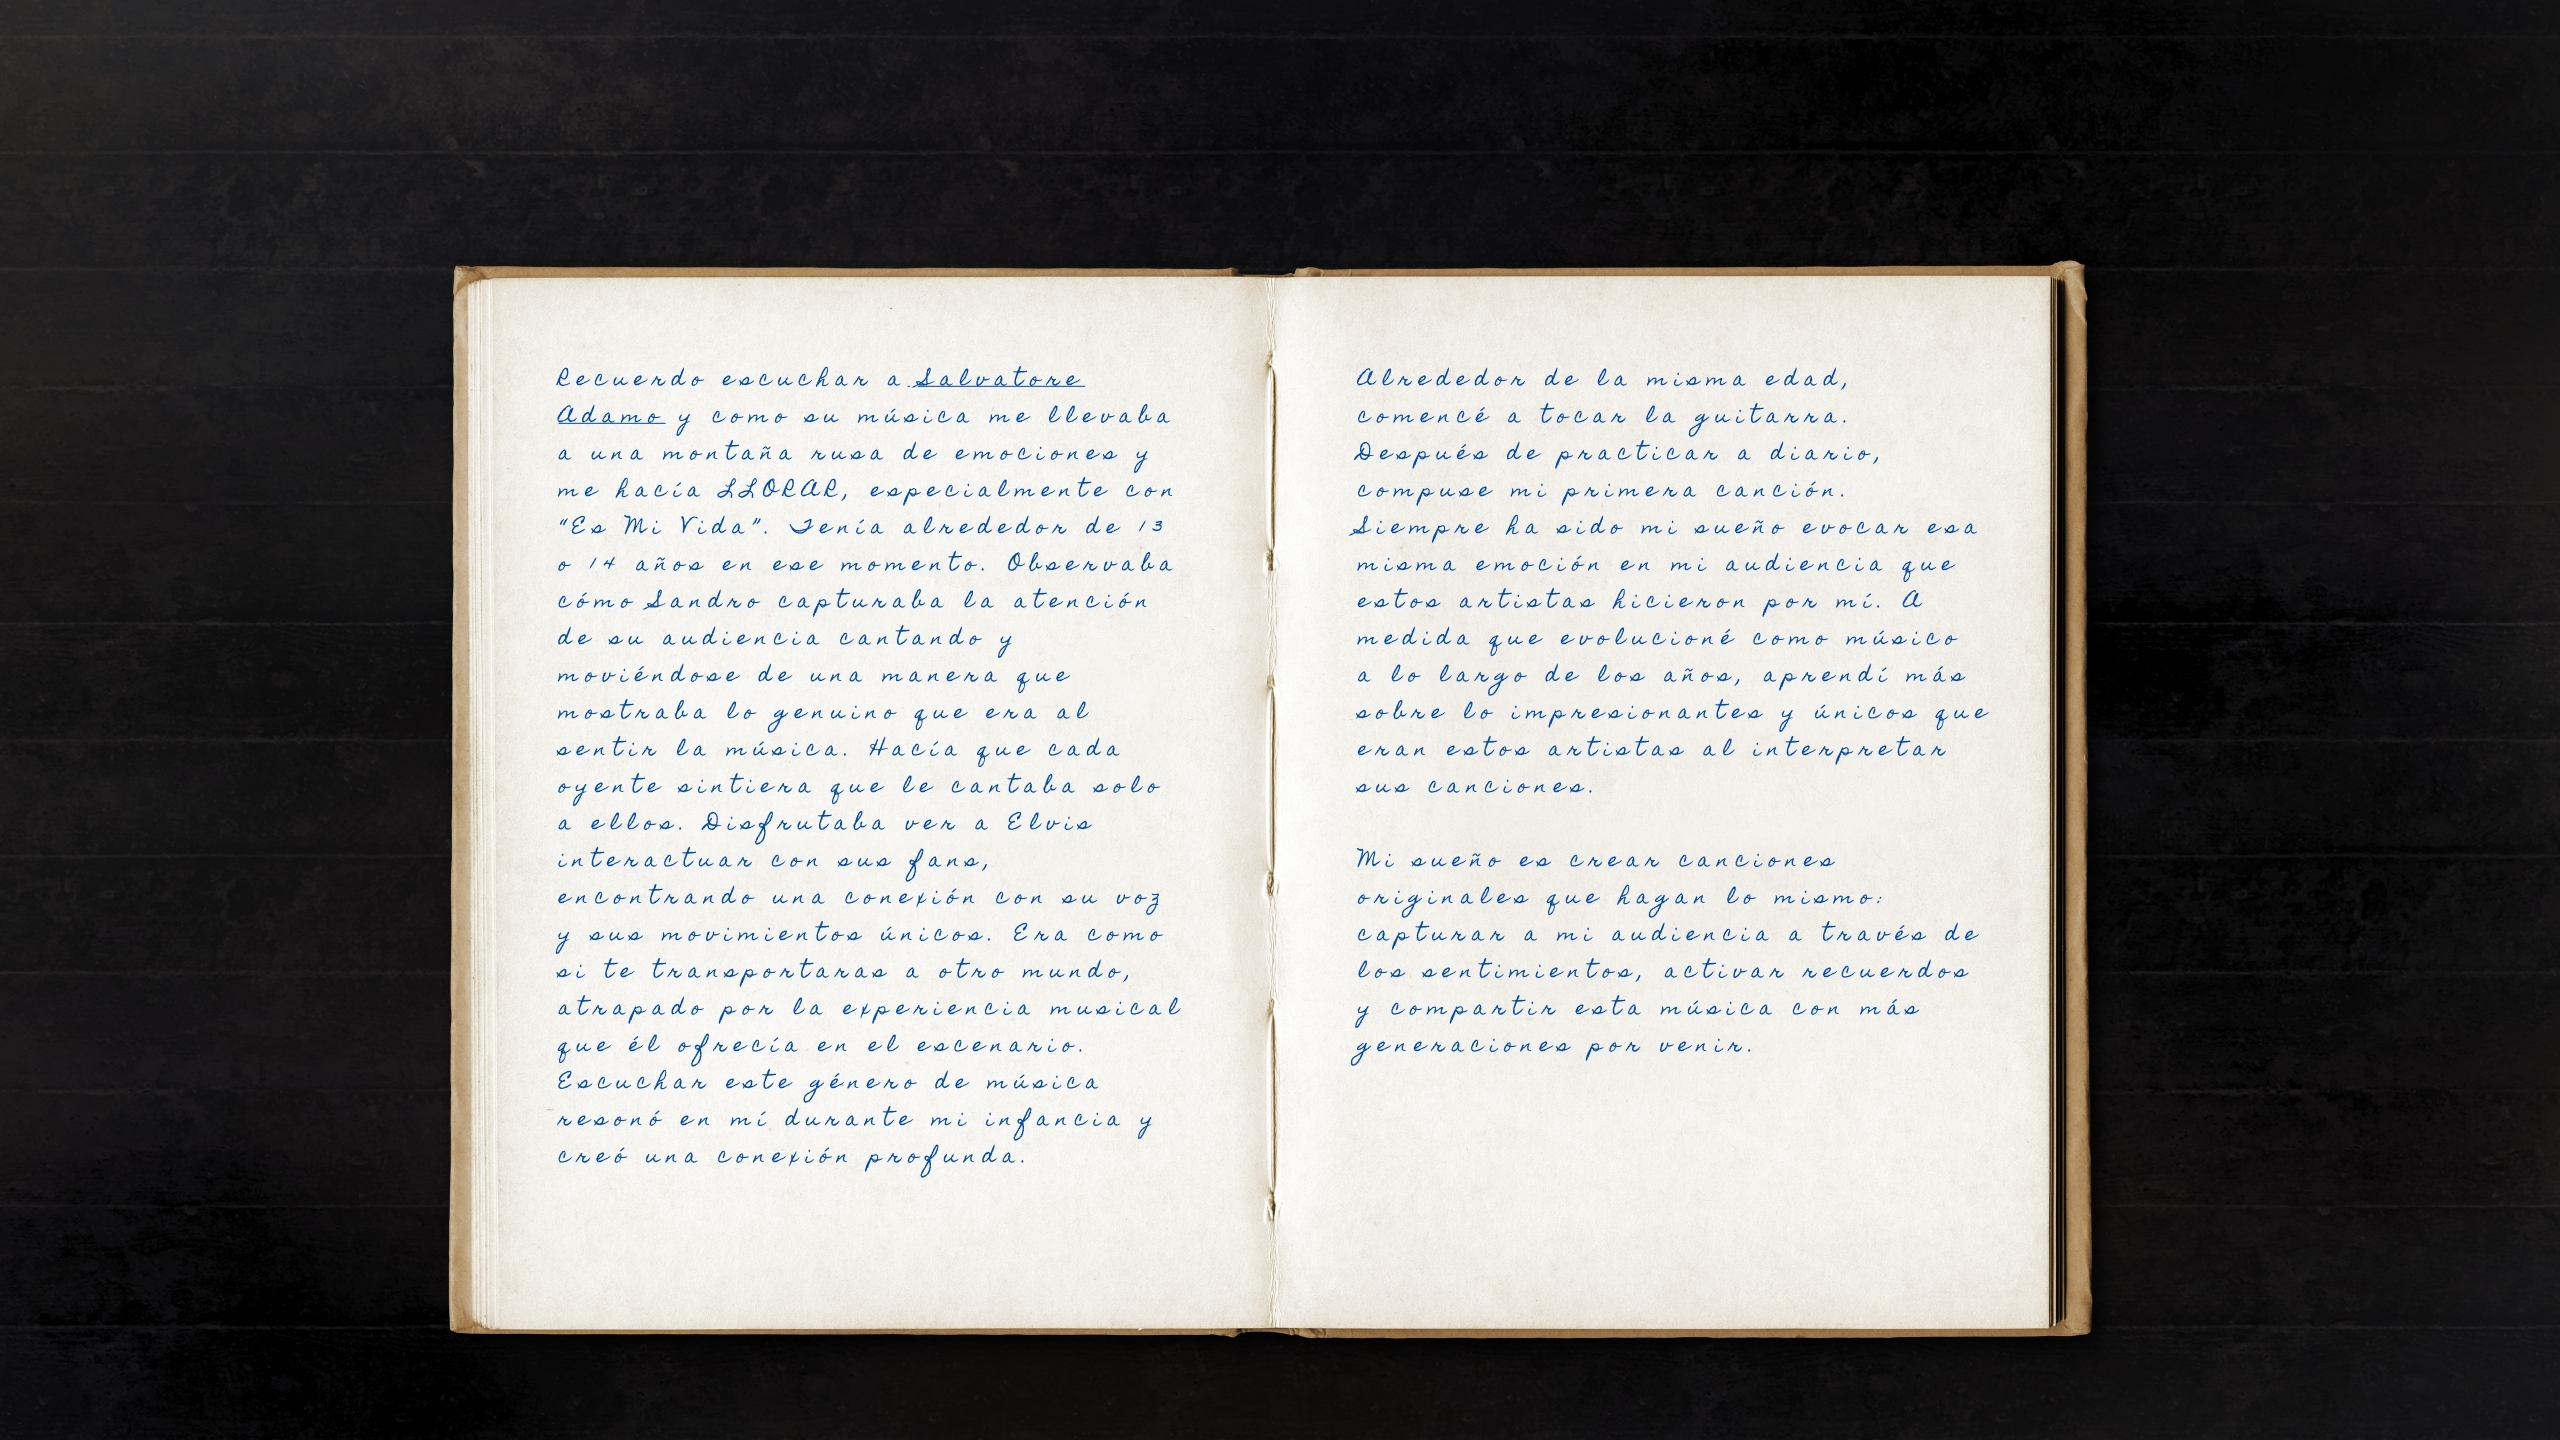 Recuerdo escuchar a Salvatore
Adamo y como su música me llevaba
a una montaña rusa de emociones y
me hacía LLORAR, especialmente con
“Es Mi Vida”. Tenía alrededor de 13
o 14 años en ese momento. Observaba
cómo Sandro capturaba la atención
de su audiencia cantando y
moviéndose de una manera que
mostraba lo genuino que era al
sentir la música. Hacía que cada
oyente sintiera que le cantaba solo
a ellos. Disfrutaba ver a Elvis
interactuar con sus fans,
encontrando una conexión con su voz
y sus movimientos únicos. Era como
si te transportaras a otro mundo,
atrapado por la experiencia musical
que él ofrecía en el escenario.
Escuchar este género de música
resonó en mí durante mi infancia y
creó una conexión profunda.
Alrededor de la misma edad,
comencé a tocar la guitarra.
Después de practicar a diario,
compuse mi primera canción.
Siempre ha sido mi sueño evocar esa
misma emoción en mi audiencia que
estos artistas hicieron por mí. A
medida que evolucioné como músico
a lo largo de los años, aprendí más
sobre lo impresionantes y únicos que
eran estos artistas al interpretar
sus canciones.
Mi sueño es crear canciones
originales que hagan lo mismo:
capturar a mi audiencia a través de
los sentimientos, activar recuerdos
y compartir esta música con más
generaciones por venir.